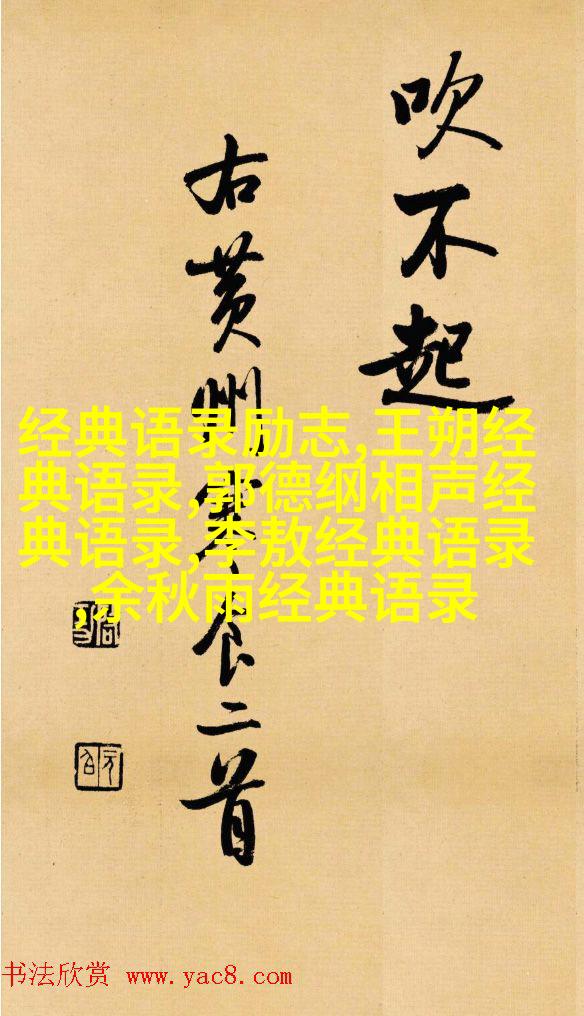 吹不起
右黄州寒食二首
经典语录励志,王朔经
典语录,郭德纲相声经
典语录,李敖经典语录
余秋雨经典语录
书法欣赏 www.yac8.com